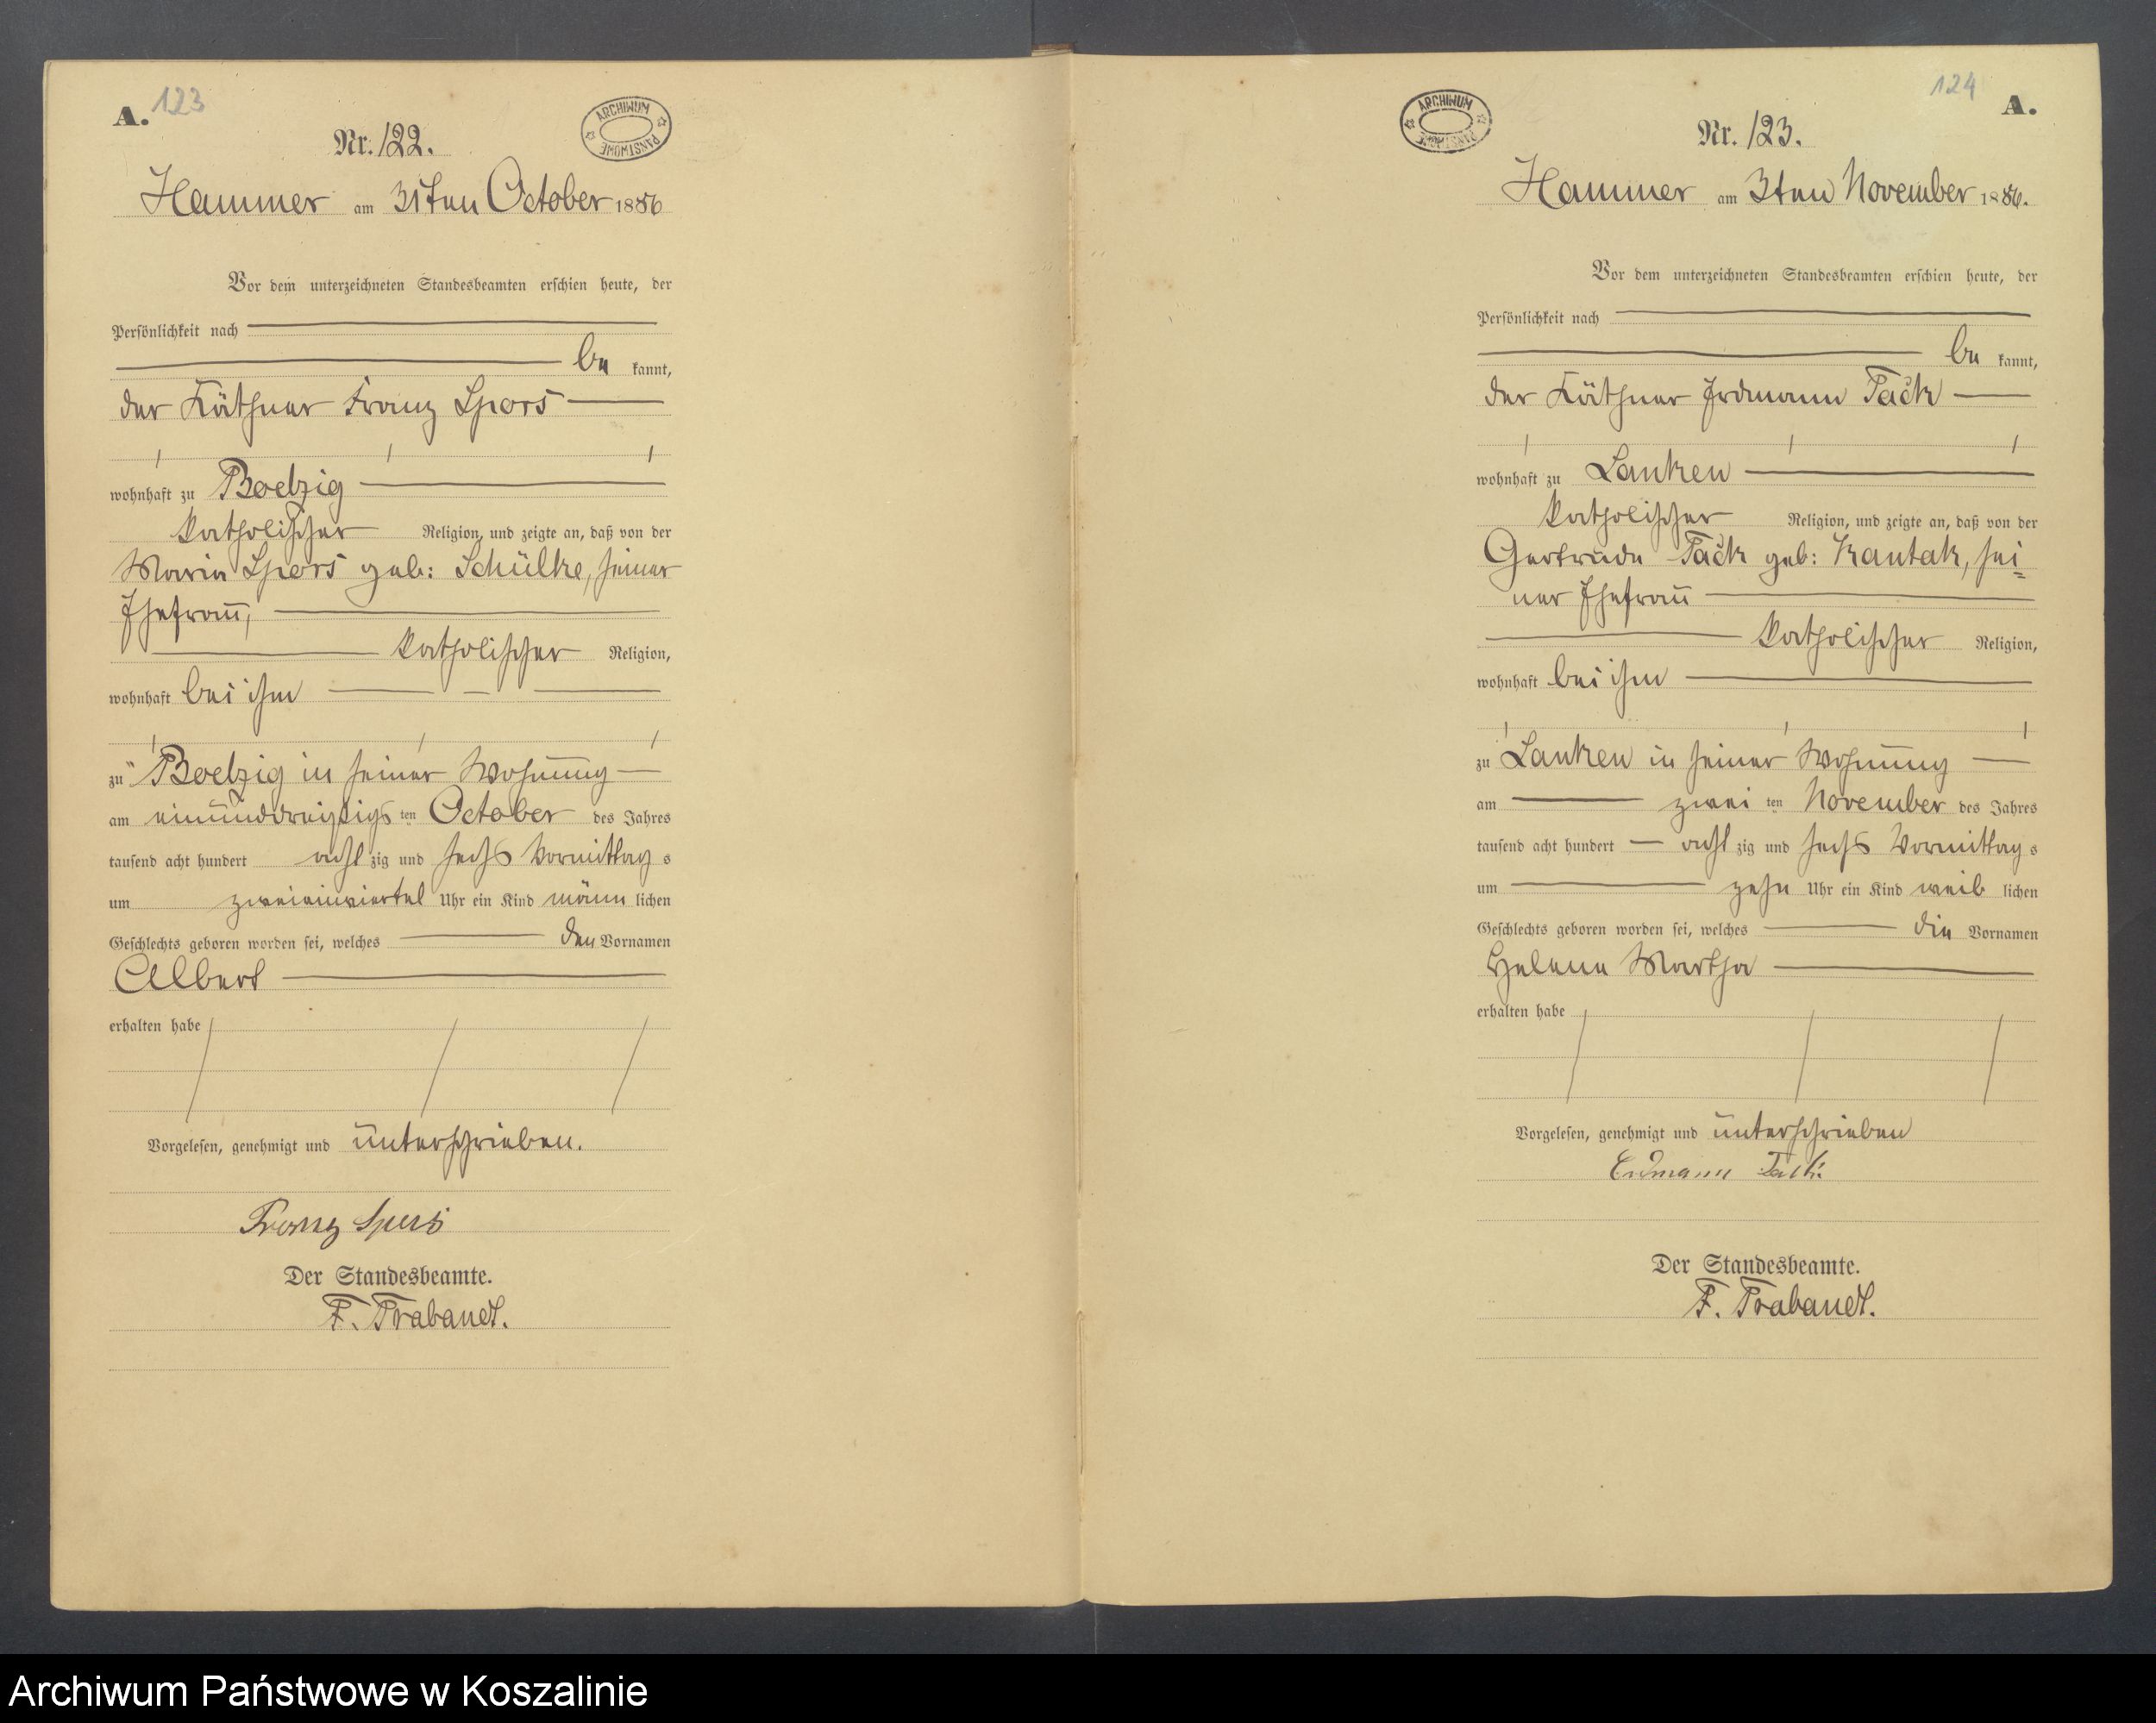 A. 123
ARCHIWUM PAŃSTWOWE
Nr. 122.
Hammer am 31ten October 1886
Vor dem unterzeichneten Standesbeamten erschien heute, der
Persönlichkeit nach
be kannt,
der Käthner Franz Spors
wohnhaft zu Boelzig
katholischer Religion, und zeigte an, daß von der
Maria Spors geb: Schülke, seiner
Ehefrau,
katholischer Religion,
wohnhaft bei ihm
zu Boelzig in seiner Wohnung
am einunddreißigs ten October des Jahres
tausend acht hundert acht zig und sechs Vormittag s
um zweieinviertel Uhr ein Kind männ lichen
Geschlechts geboren worden sei, welches den Vornamen
Albert
erhalten habe
Vorgelesen, genehmigt und unterschrieben.
Franz Spors
Der Standesbeamte.
F. Trabandt.
124 A.
ARCHIWUM PAŃSTWOWE
Nr. 123.
Hammer am 3ten November 1886.
Vor dem unterzeichneten Standesbeamten erschien heute, der
Persönlichkeit nach
be kannt,
der Käthner Erdmann Tack
wohnhaft zu Lanken
katholischer Religion, und zeigte an, daß von der
Gertrude Tack geb: Kantak, sei=
ner Ehefrau
katholischer Religion,
wohnhaft bei ihm
zu Lanken in seiner Wohnung
am zwei ten November des Jahres
tausend acht hundert acht zig und sechs Vormittag s
um zehn Uhr ein Kind weib lichen
Geschlechts geboren worden sei, welches die Vornamen
Helene Martha
erhalten habe
Vorgelesen, genehmigt und unterschrieben
Erdmann Tack
Der Standesbeamte.
F. Trabandt.
Archiwum Państwowe w Koszalinie